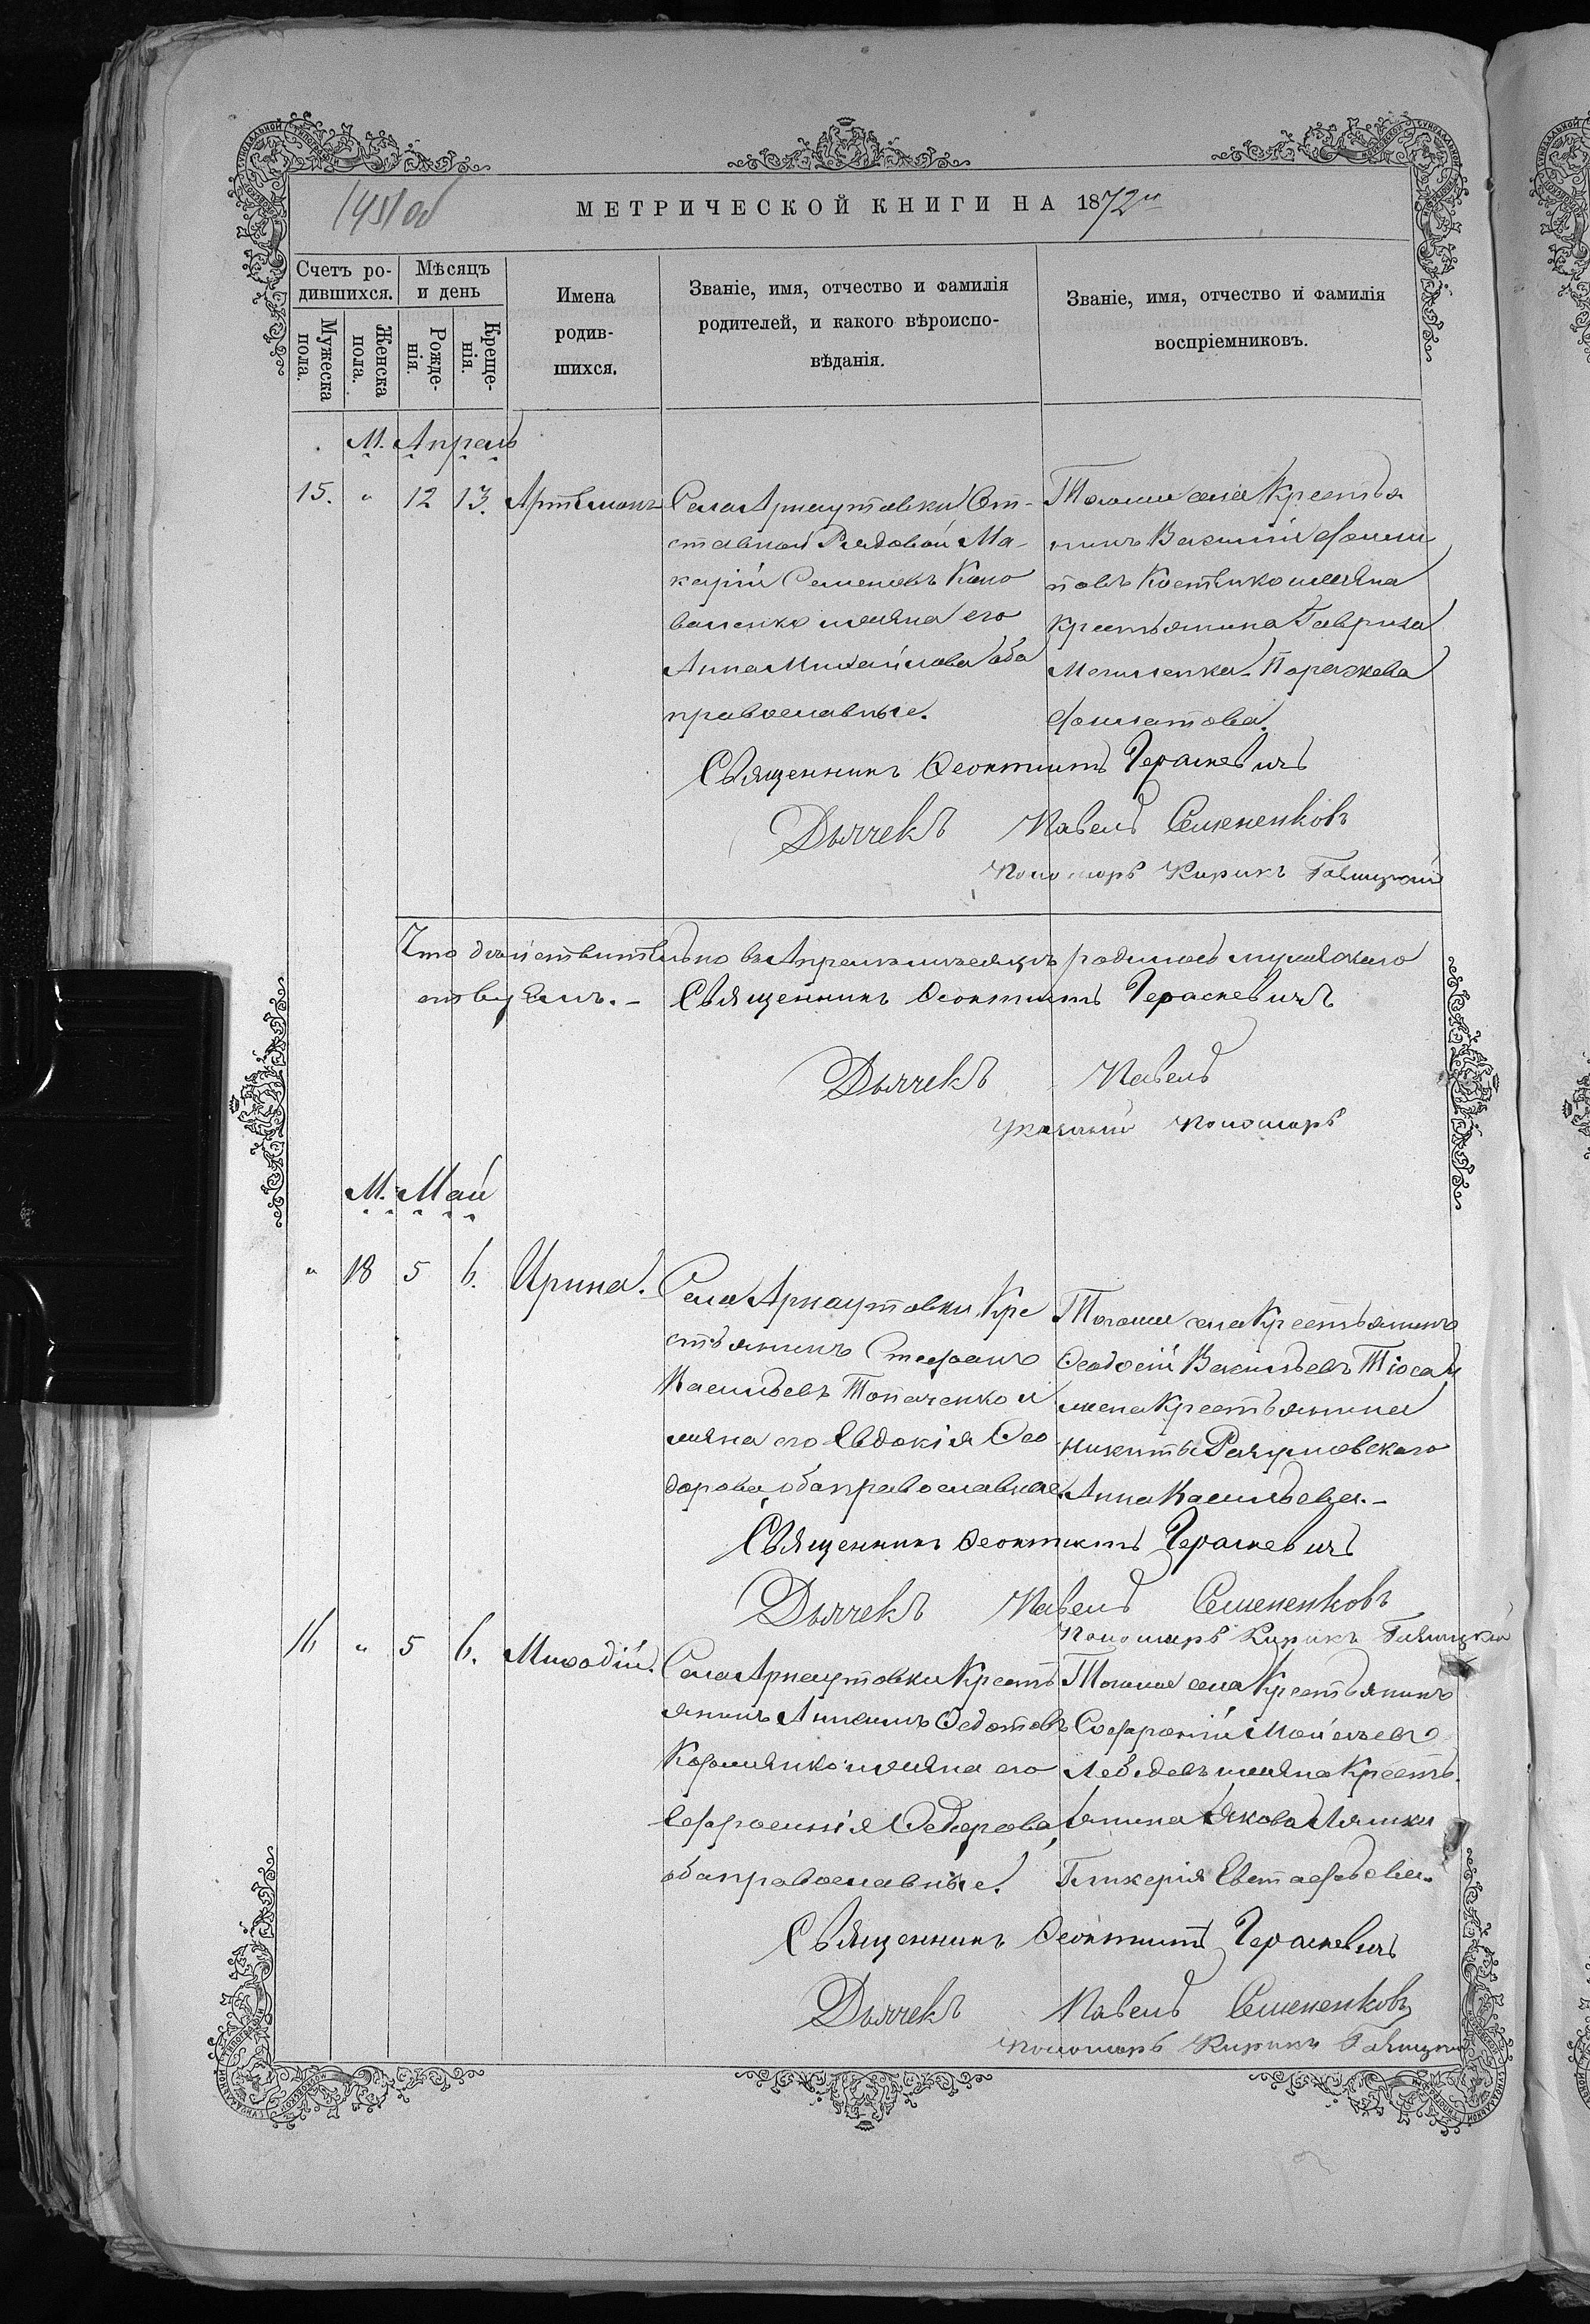 МЕТРИЧЕСКОЙ КНИГИ НА 1872й
Счетъ ро-
дившихся.
Мужеска пола.
Женска пола.
Мѣсяцъ
и день
Рожде-
нія.
Креще-
нія.
Имена
родив-
шихся.
Званіе, имя, отчество и фамилія
родителей, и какого вѣроиспо-
вѣданія.
Званіе, имя, отчество и фамилія
воспріемниковъ.
М. Апрель
15. " 12 13. Артемонъ
Села Арнаутовки От-
ставной Рядовой Ма-
карій Семеновъ Коно
валенко и жена его
Анна Михайлова оба
православные.
Тогоже села Крестья
нинъ Василій
товъ Костенко и жена
крестьянина Гаврила
Могиленка Параскева
Филатова.
Священникъ Феоктистъ Гераскевичъ
Дьячекъ Павелъ Семененковъ
Пономарь Кирикъ
Что действительно въ Апреле месяце родилось мужескаго
Священникъ Феоктистъ Гераскевичъ
Дьячекъ Павелъ
Указный Пономарь
М. Май
" 18 5 6. Ирина.
Села Арнаутовки Кре
стьянинъ Стефанъ
Васильевъ Топаченко и
жена его Евдокія Фео
дорова, оба православные.
Тогоже села Крестьянинъ
Феодосій Васильевъ
жена Крестьянина
Никиты Разумовскаго
Анна Васильева.-
Священникъ Феоктистъ Гераскевичъ
Дьячекъ Павелъ Семененковъ
Пономарь Кирикъ
16 " 5 6. Мифодій.
Села Арнаутовки Кресть
янинъ Федотовъ
и жена его
Ефросинія Федорова,
оба православные.
Тогоже села Крестьянинъ
Софроній Мойсеевъ
Лебедевъ и жена Кресть
янина Якова Ляшки
Гликерія Евстафьева.
Священникъ Феоктистъ Гераскевичъ
Дьячекъ Павелъ Семененковъ
Пономарь Кирикъ